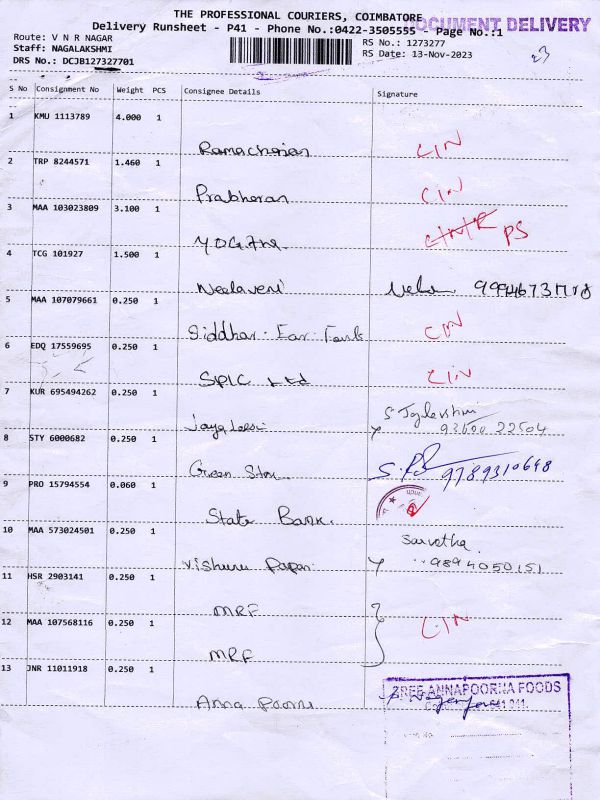 THE PROFESSIONAL COURIERS, COIMBATORE
DOCUMENT DELIVERY
Delivery Runsheet - P41 - Phone No.:0422-3505555 - Page No.:1
Route: V N R NAGAR
RS No.: 1273277
Staff: NAGALAKSHMI
RS Date: 13-Nov-2023
DRS No.: DCJB127327701
23
S No Consignment No Weight PCS Consignee Details Signature
1 KMU 1113789 4.000 1
Ramachandran CIN
2 TRP 8244571 1.460 1
Prabharan CIN
3 MAA 103023809 3.100 1
PS
4 TCG 101927 1.500 1
Neelaveni
5 MAA 107079661 0.250 1
Siddhar CIN
6 EDQ 17559695 0.250 1
SPIC Ltd CIN
7 KUR 695494262 0.250 1
93600 22504
8 STY 6000682 0.250 1
Green 9789310648
9 PRO 15794554 0.060 1
State Bank.
10 MAA 573024501 0.250 1
9894050151
11 HSR 2903141 0.250 1
MRF
12 MAA 107568116 0.250 1
CIN
MRF
13 JNR 11011918 0.250 1
SREE ANNAPOORNA FOODS
Anna